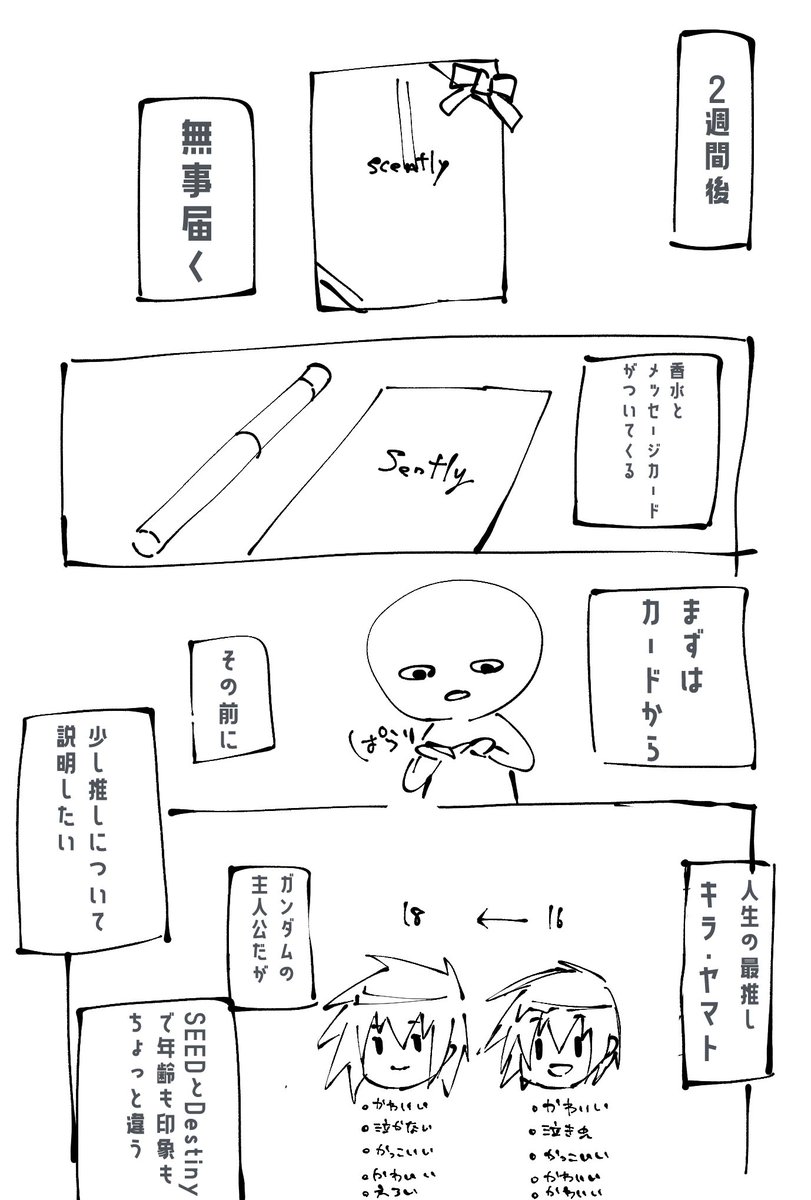 2週間後
scently
無事届く
香水と
メッセージカード
がついてくる
Sently
まずは
カードから
ぱらり
その前に
少し推しについて
説明したい
人生の最推し
キラ・ヤマト
16
18
ガンダムの
主人公だが
SEEDとDestiny
で年齢も印象も
ちょっと違う
かわいい
泣き虫
かっこいい
かわいい
かわいい
かわいい
泣かない
かっこいい
かわいい